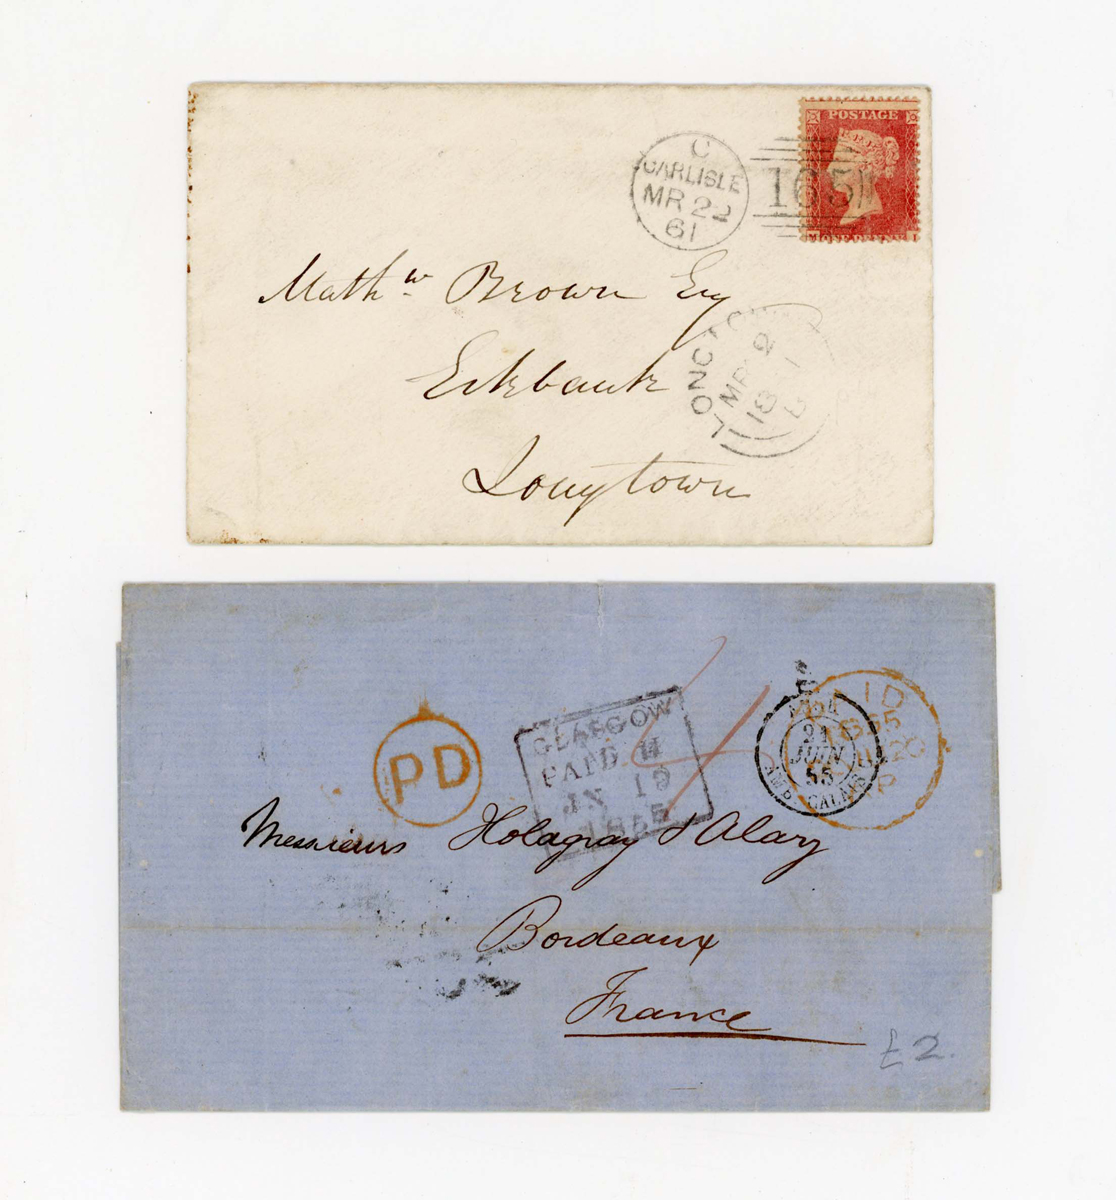 POSTAGE
ONE PENNY
C
CARLISLE
MR 22
61
165
Mathw Brown Esq
Eskbank
Longtown
LONGTOWN
MR 2
18 61
PD
GLASGOW
PAID
JN 19
1855
4
PAID
1855
JU 20
21
JUIN
55
AMB. CALAIS
Messieurs Holagray & Alary
Bordeaux
France
£2.